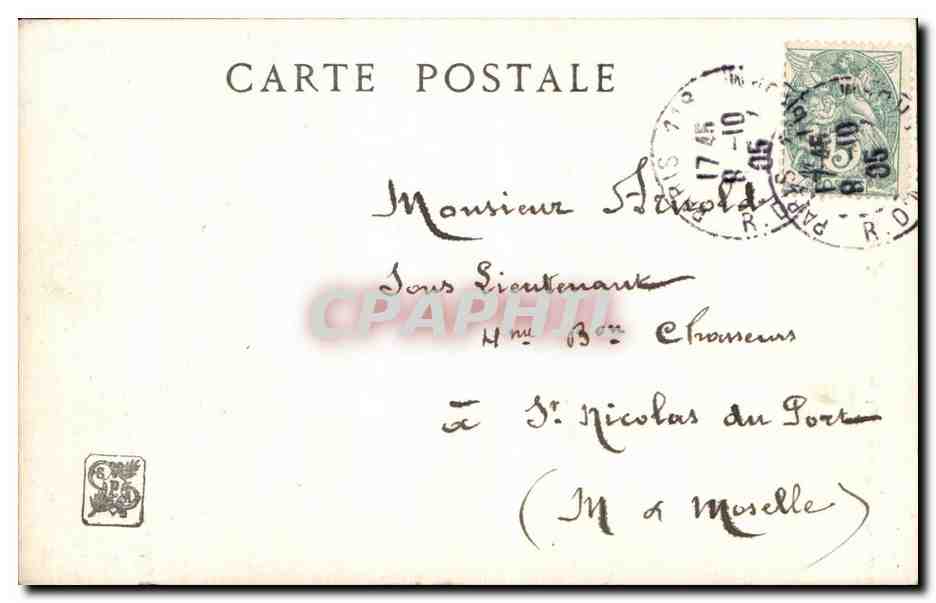 CARTE POSTALE
PARIS 118
17 45
8 -10
05
R.
PARIS 118
17 45
8 -10
05
R. D
5
Monsieur Arnold
Sous Lieutenant
CPAPHIL
4me Bon Chasseurs
à St Nicolas du Port
(M & Moselle)